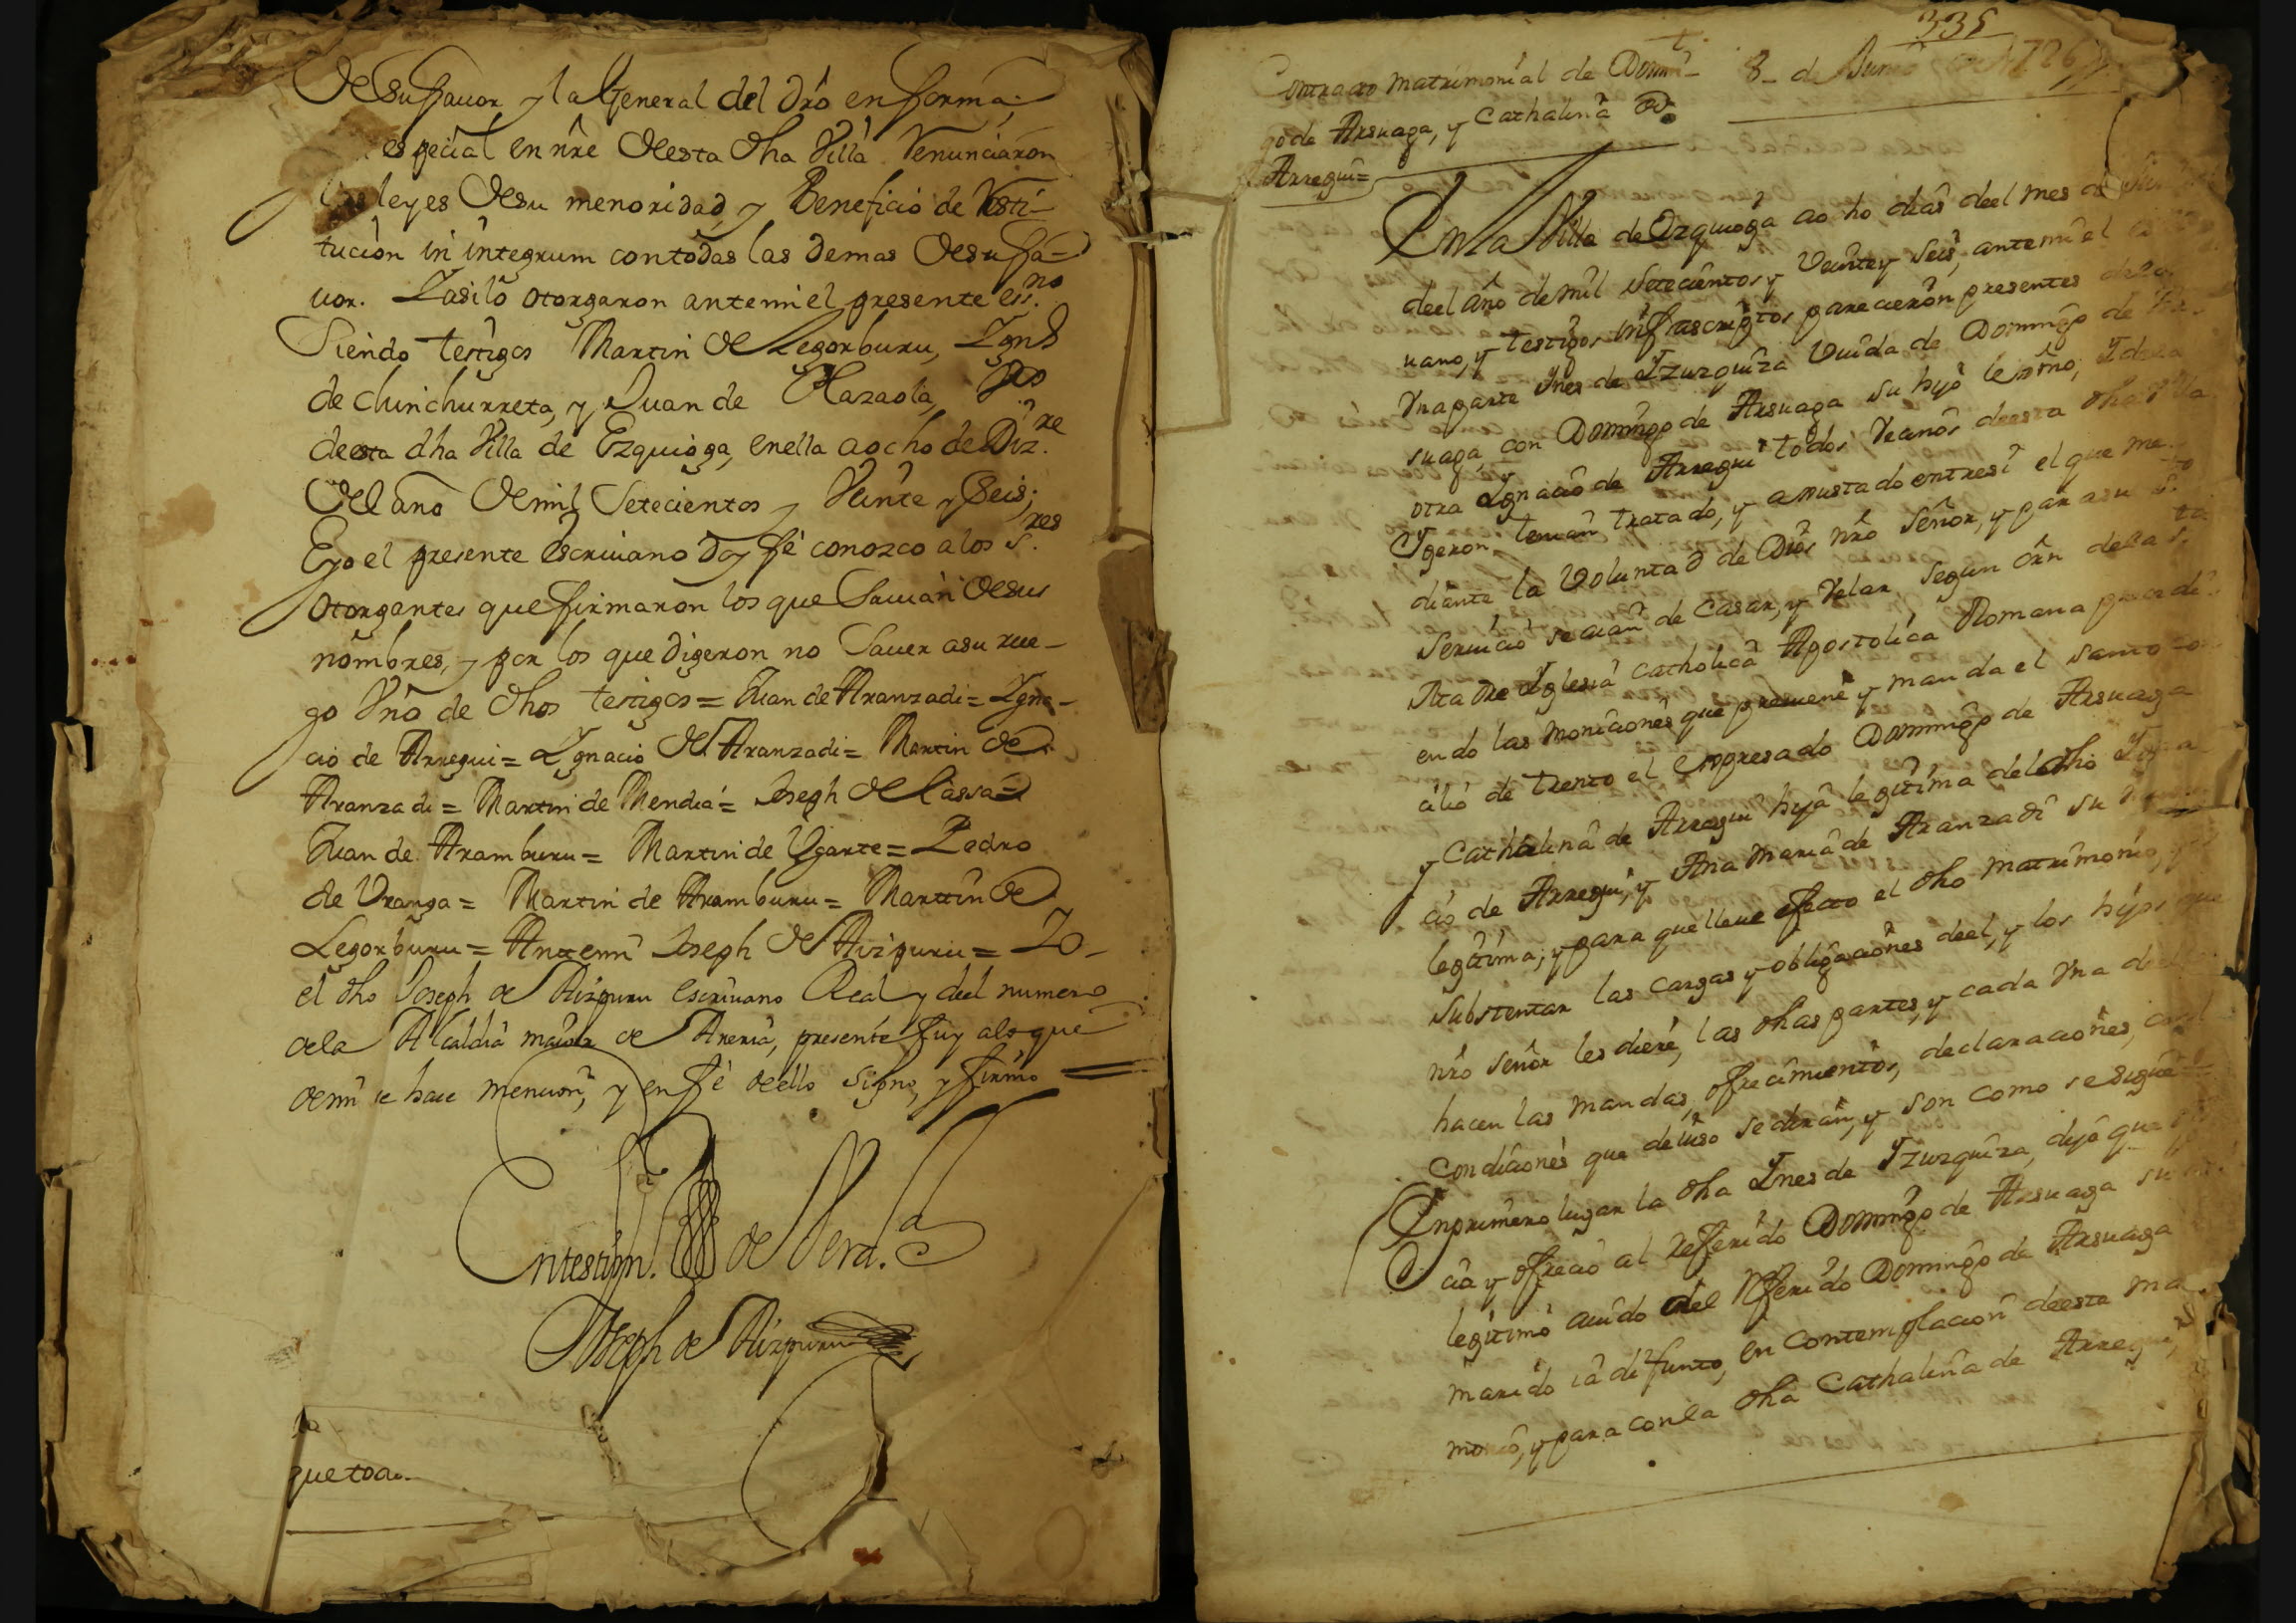 de su fauor y la General del dro en forma,
especial en nre de esta dha Villa Renunciaron
las leyes de su menoridad, y Beneficio de Resti-
tucion in integrum con todas las demas de su fa-
uor. Y asi lo otorgaron ante mi el presente essno.
Siendo testigos Martin de Legorburu, Ygno
de chinchurreta, y Juan de Olazaola,
de esta dha Villa de Ezquioga, en ella a ocho de Dizre.
del año de mil Setecientos y Veinte y Seis;
E yo el presente escriuano doy fé conozco a los Sres.
otorgantes que firmaron los que Sauian de sus
nombres, y por los que digeron no Sauer a su rue-
go Vno de dhos testigos = Juan de Aranzadi = Ygna-
cio de Arregui = Ygnacio de Aranzadi = Martin de
Aranzadi = Martin de Mendia = Joseph de Lassa =
Juan de Aramburu = Martin de Ygarte = Pedro
de Vranga = Martin de Aramburu = Marttin de
Legorburu = Antemi Joseph de Aizpuru = Yo
el dho Joseph de Aizpuru escriuano Real y del numero
de la Alcaldia maior de Areria, presente fuy a lo que
de mi se hace mencion, y en fé de ello signo, y firmo =
En testim. de Verd.a
Joseph de Aizpuru
que toa
335
Contracto matrimonial de Domin- 8- de Junio de 1726
go de Arsuaga, y Cathalina de
Arregui =
En la Villa de Ezquioga a o ho dias del mes de Junio
del año de mil Setecientos y Veinte y Seis, ante mi el escri-
uano, y testigos infrascriptos parecieron presentes de la
Vna parte Ynes de Yzuzquiza Viuda de Domingo de Ar-
suaga con Domingo de Arsuaga su hijo lexmo, Y de la
otra Ygnacio de Arregui todos Vecinos de esta dha Villa
y digeron tenian tratado, y ajustado entre si el que me-
diante la Voluntad de Dios nro Señor, y para su sto
Seruicio se aian de Casar, y Velar, segun orn de la sta
Madre Yglesia Catholica Apostolica Romana precedi-
endo las moniciones que preuiene y manda el santo con-
cilio de trento el expresado Domingo de Arsuaga
y Cathalina de Arregui hija legitima del dho Ygna-
cio de Arregui, y Ana Maria de Aranzadi su muger
legitima; y para que lleue efecto el dho matrimonio, y
Substentar las cargas y obligaciones de el, y los hijos que
nro Señor les diere, las dhas partes, y cada Vna de ellas
hacen las mandas, ofrecimientos, declaraciones, con
Condiciones que de iuso se diran, y son como se sigue
En primero lugar la dha Ynes de Yzuzquiza, dijo que
cia y ofrecio al referido Domingo de Arsuaga su hijo
legitimo auido del referido Domingo de Arsuaga
marido ia difunto, en Contemplacion de esta ma-
monio, y para con la dha Cathalina de Arregui,